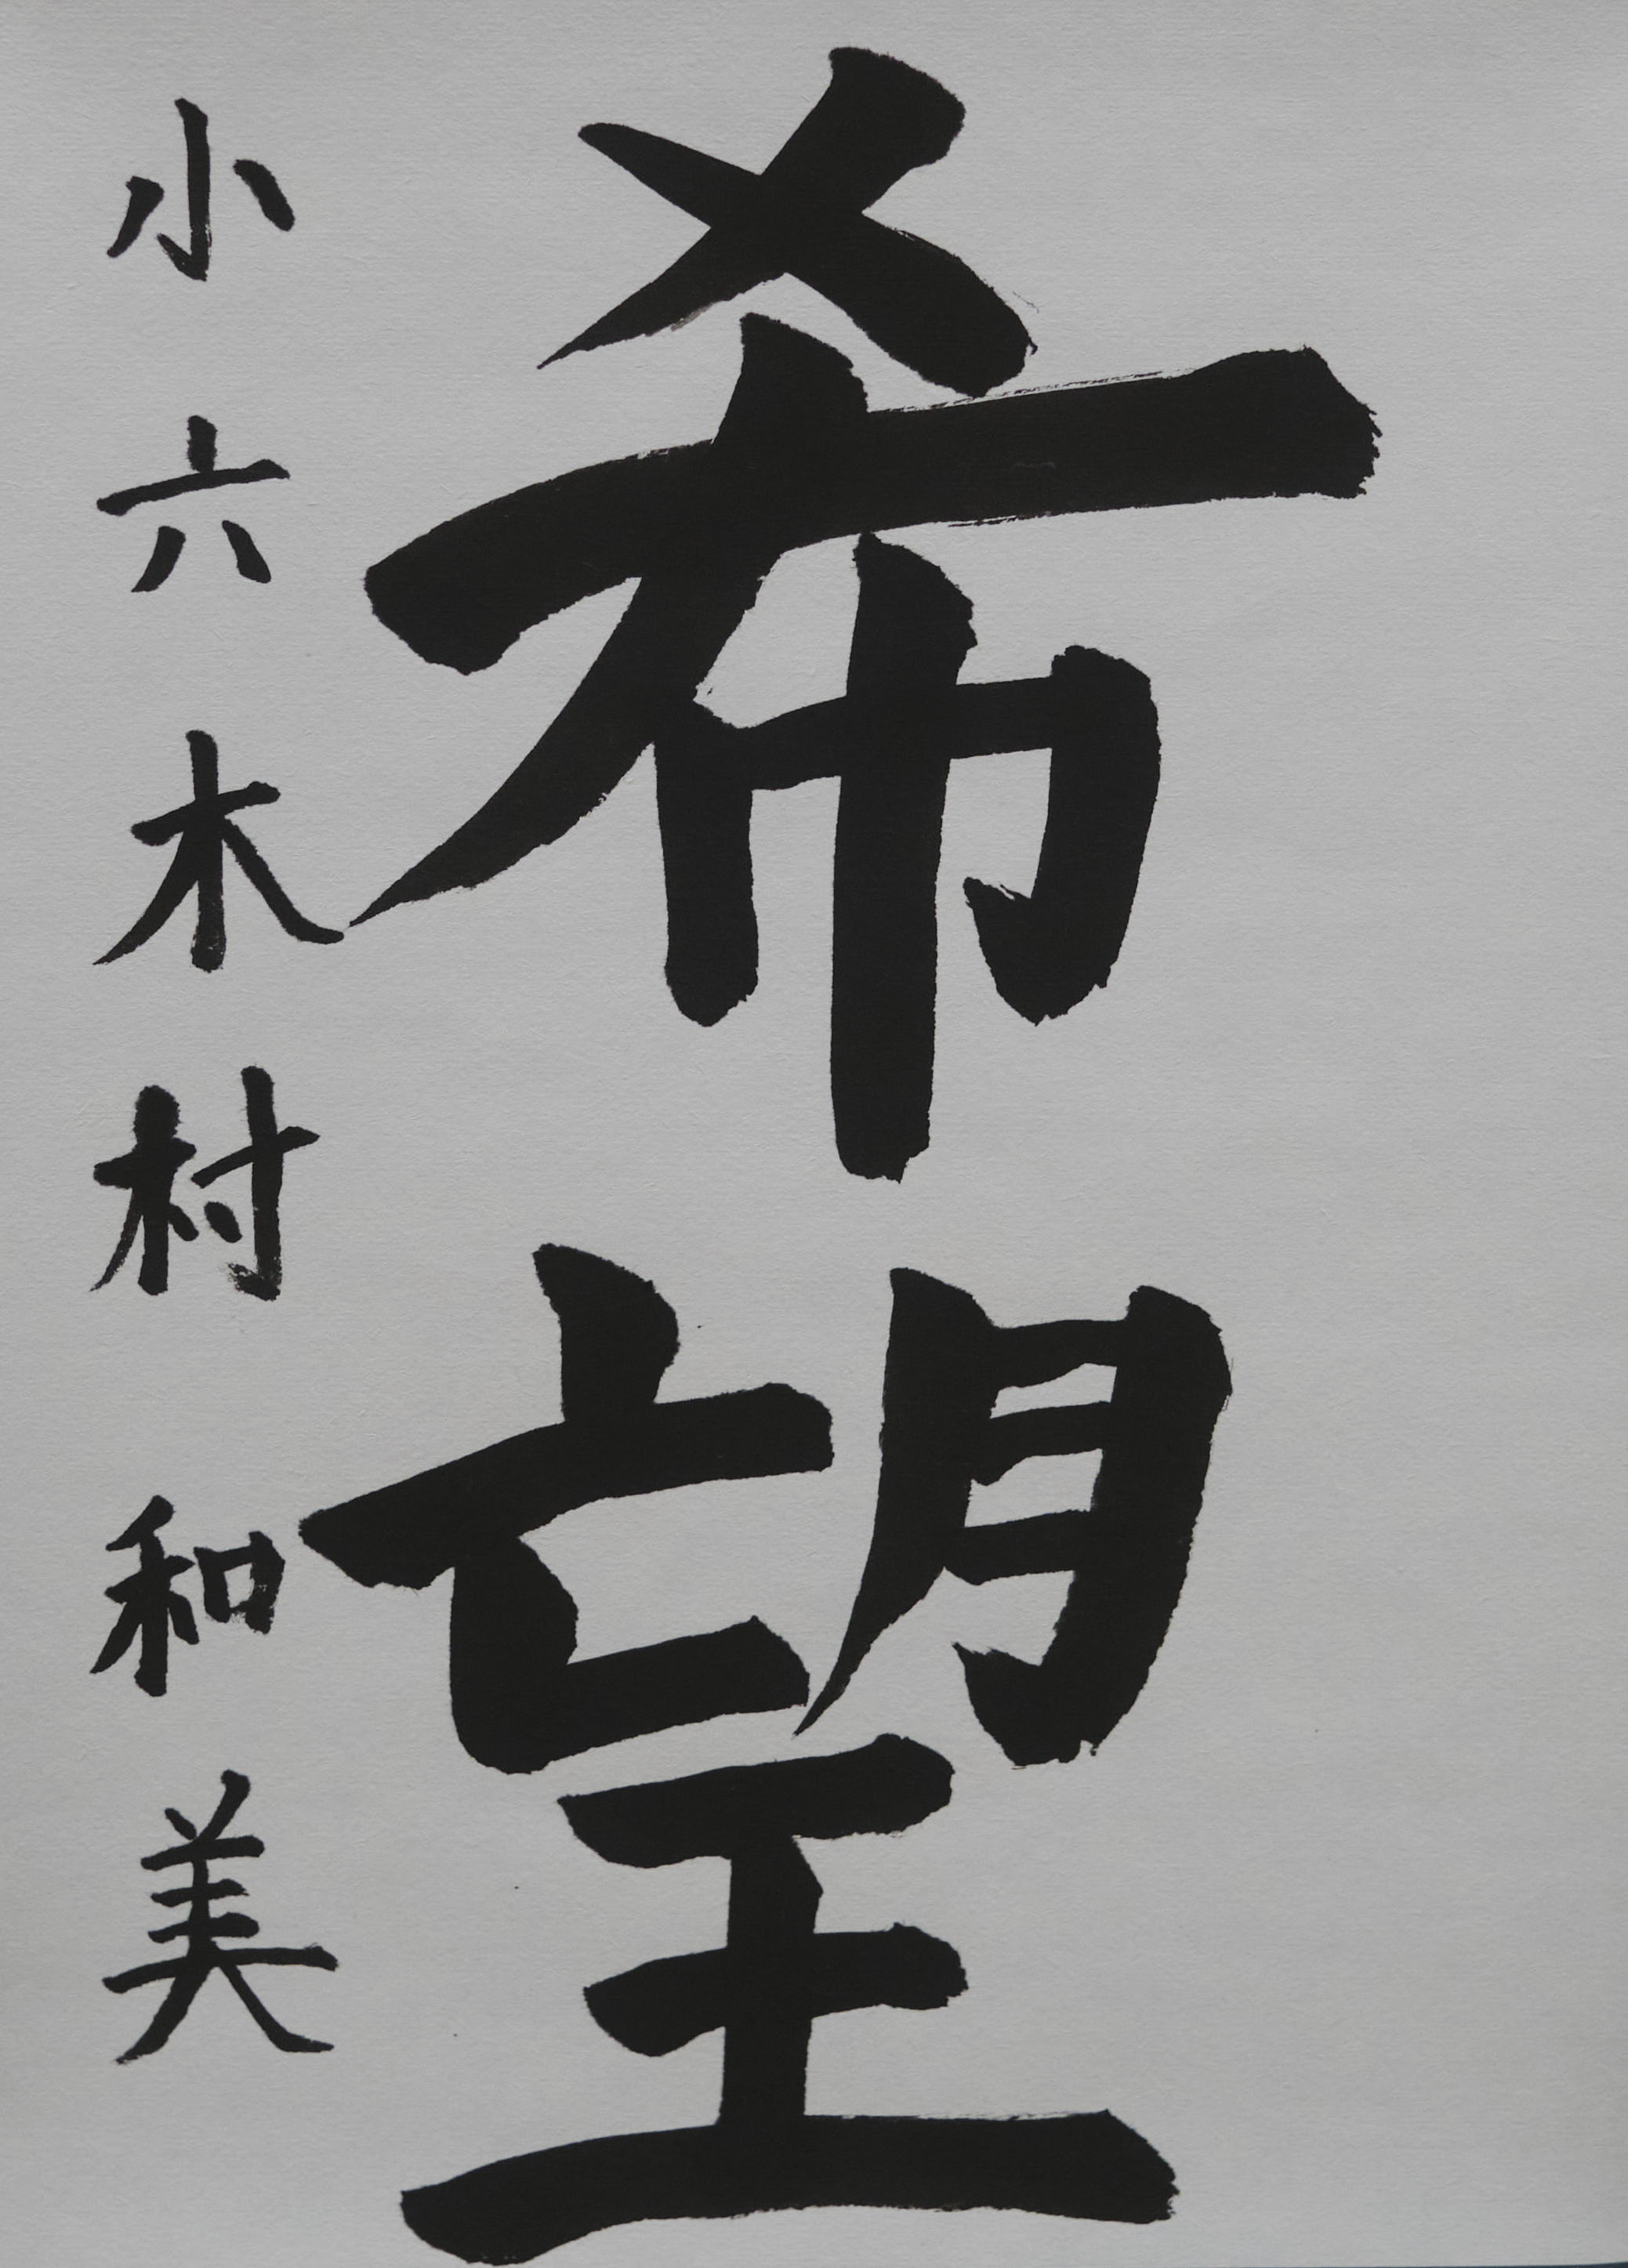 希望
小六木村和美